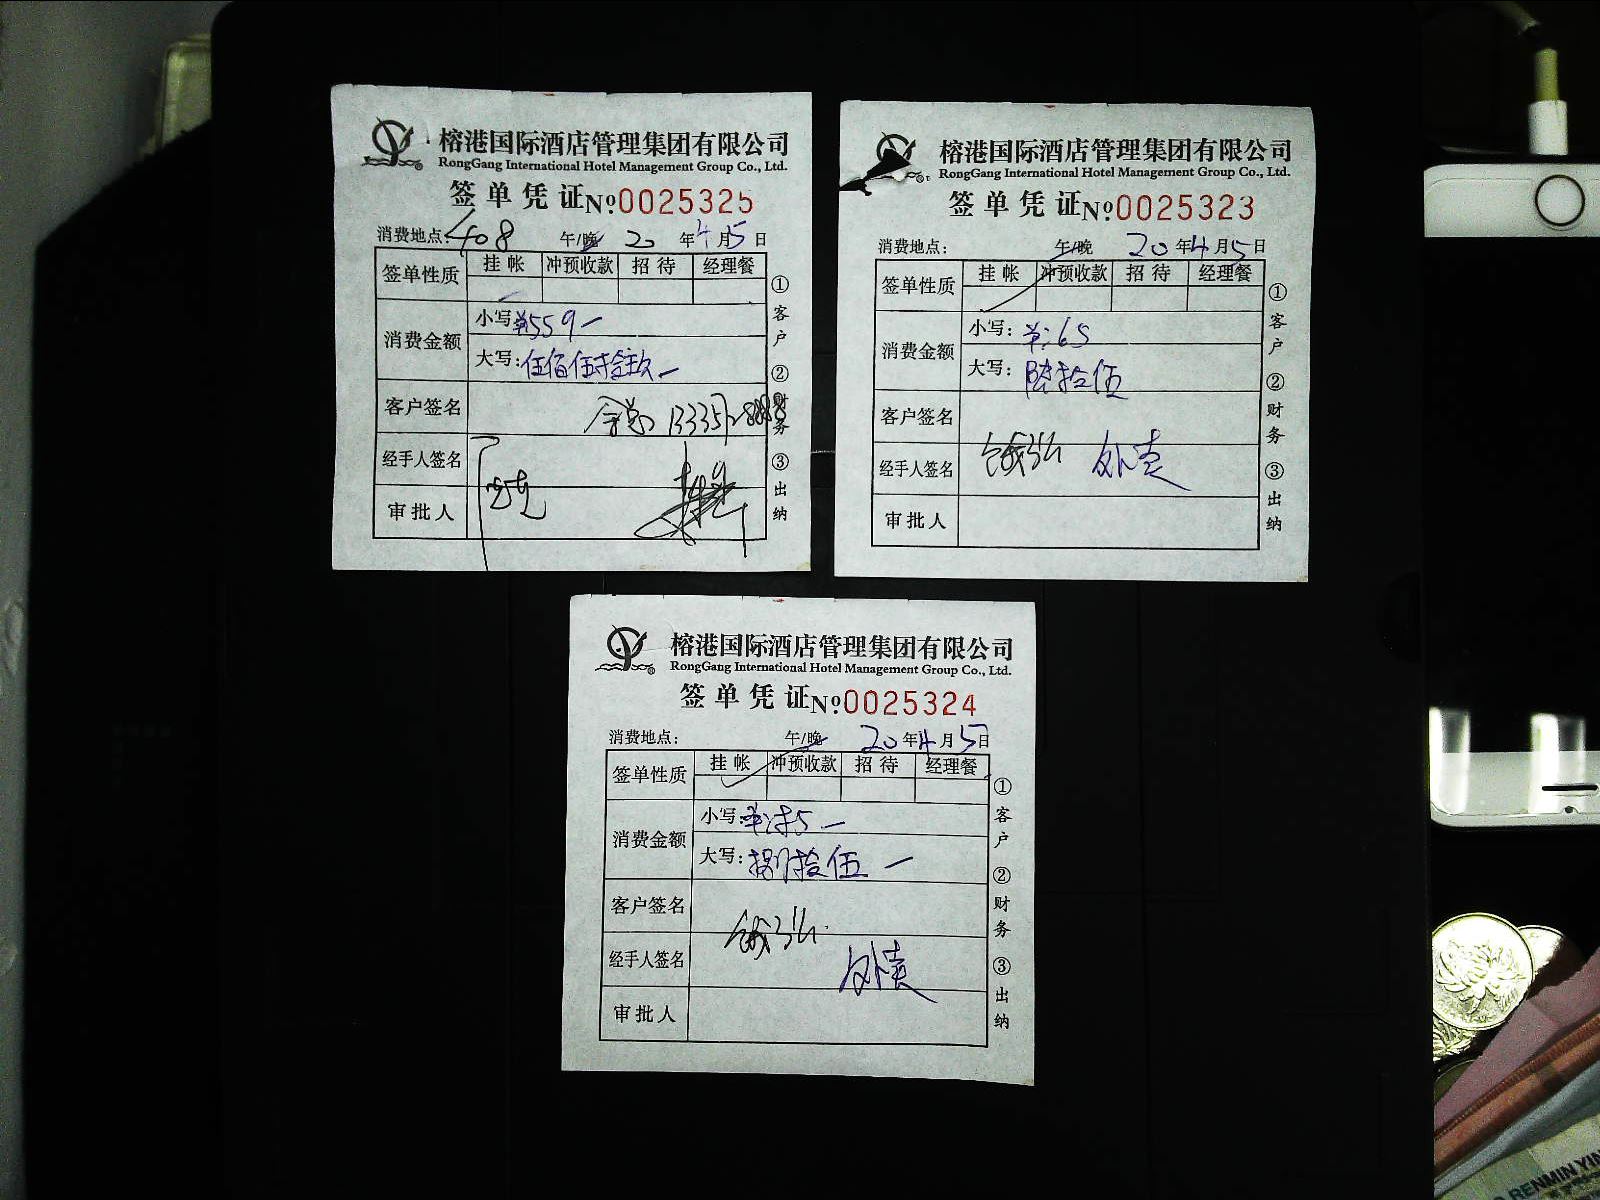 榕港国际酒店管理集团有限公司
RongGang International Hotel Management Group Co., Ltd.
签单凭证 №0025325
消费地点: 408 午/晚 20 年 4 月 5 日
签单性质 挂帐 冲预收款 招待 经理餐
消费金额 小写: ¥559一
大写: 伍佰伍拾玖一
客户签名
经手人签名
审批人
①客户 ②财务 ③出纳
榕港国际酒店管理集团有限公司
RongGang International Hotel Management Group Co., Ltd.
签单凭证 №0025323
消费地点: 午/晚 20 年 4 月 5 日
签单性质 挂帐 冲预收款 招待 经理餐
消费金额 小写: ¥:65
大写: 陆拾伍
客户签名
经手人签名 外卖
审批人
①客户 ②财务 ③出纳
榕港国际酒店管理集团有限公司
RongGang International Hotel Management Group Co., Ltd.
签单凭证 №0025324
消费地点: 午/晚 20 年 4 月 5 日
签单性质 挂帐 冲预收款 招待 经理餐
消费金额 小写:
大写: 捌拾伍 一
客户签名
经手人签名 外卖
审批人
①客户 ②财务 ③出纳
RENMIN YIN